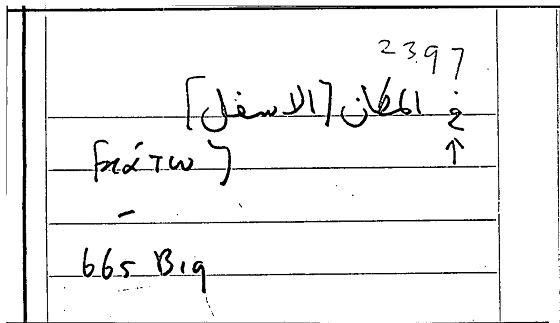 2397
في المكان [الاسفل]
[κάτω]
–
665 B19